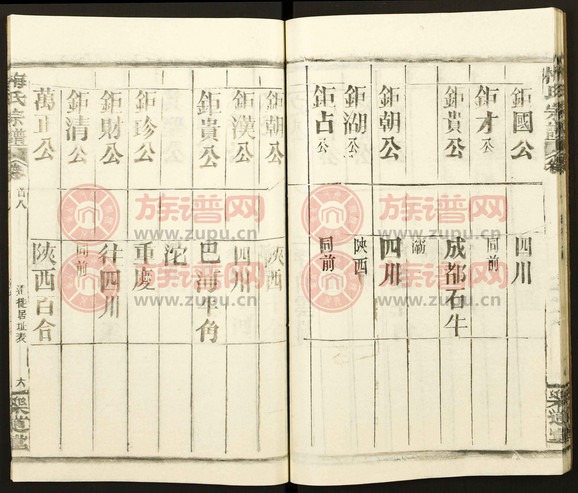 梅氏宗譜
鉅國公 四川
鉅才公 同前
鉅貴公 成都石牛
鉅朝公 四川
鉅湖公 陝西
鉅占公 同前
鉅朝公 陝西
鉅漢公 四川
鉅貴公 巴
鉅珍公 重慶
鉅財公 往四川
鉅清公 同前
萬正公 陝西百合
梅氏宗譜 卷
首八
遷徙居址表
六
樂道堂
樂道堂
族谱网
www.zupu.cn
族谱网
www.zupu.cn
族谱网
www.zupu.cn
族谱网
www.zupu.cn